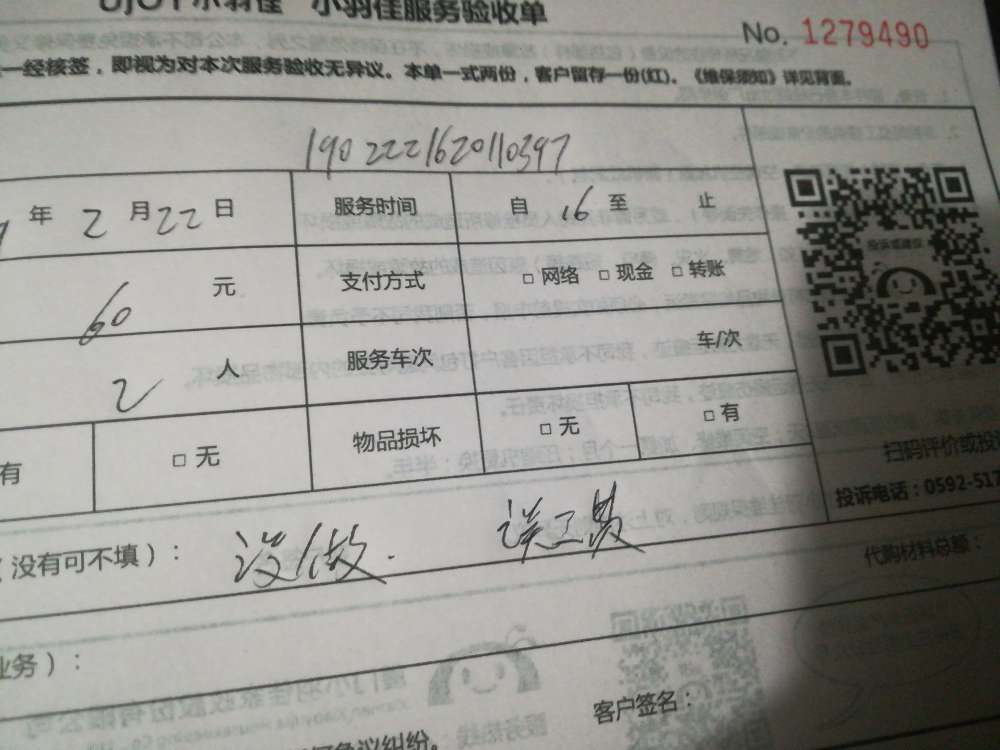 UJOY小羽佳 小羽佳服务验收单
No. 1279490
一经核签，即视为对本次服务验收无异议。本单一式两份，客户留存一份(红)。《维保须知》详见背面。
1902221620110397
年 2 月 22 日 服务时间 自 16 至 止
60 元 支付方式 □ 网络 □ 现金 □ 转账
投诉或建议
2 人 服务车次 车/次
有 □ 无 物品损坏 □ 无 □ 有
扫码评价或投
投诉电话：0592-517
（没有可不填）： 没做. 误工费
代购材料总额：
业务）：
客户签名：
争议纠纷。